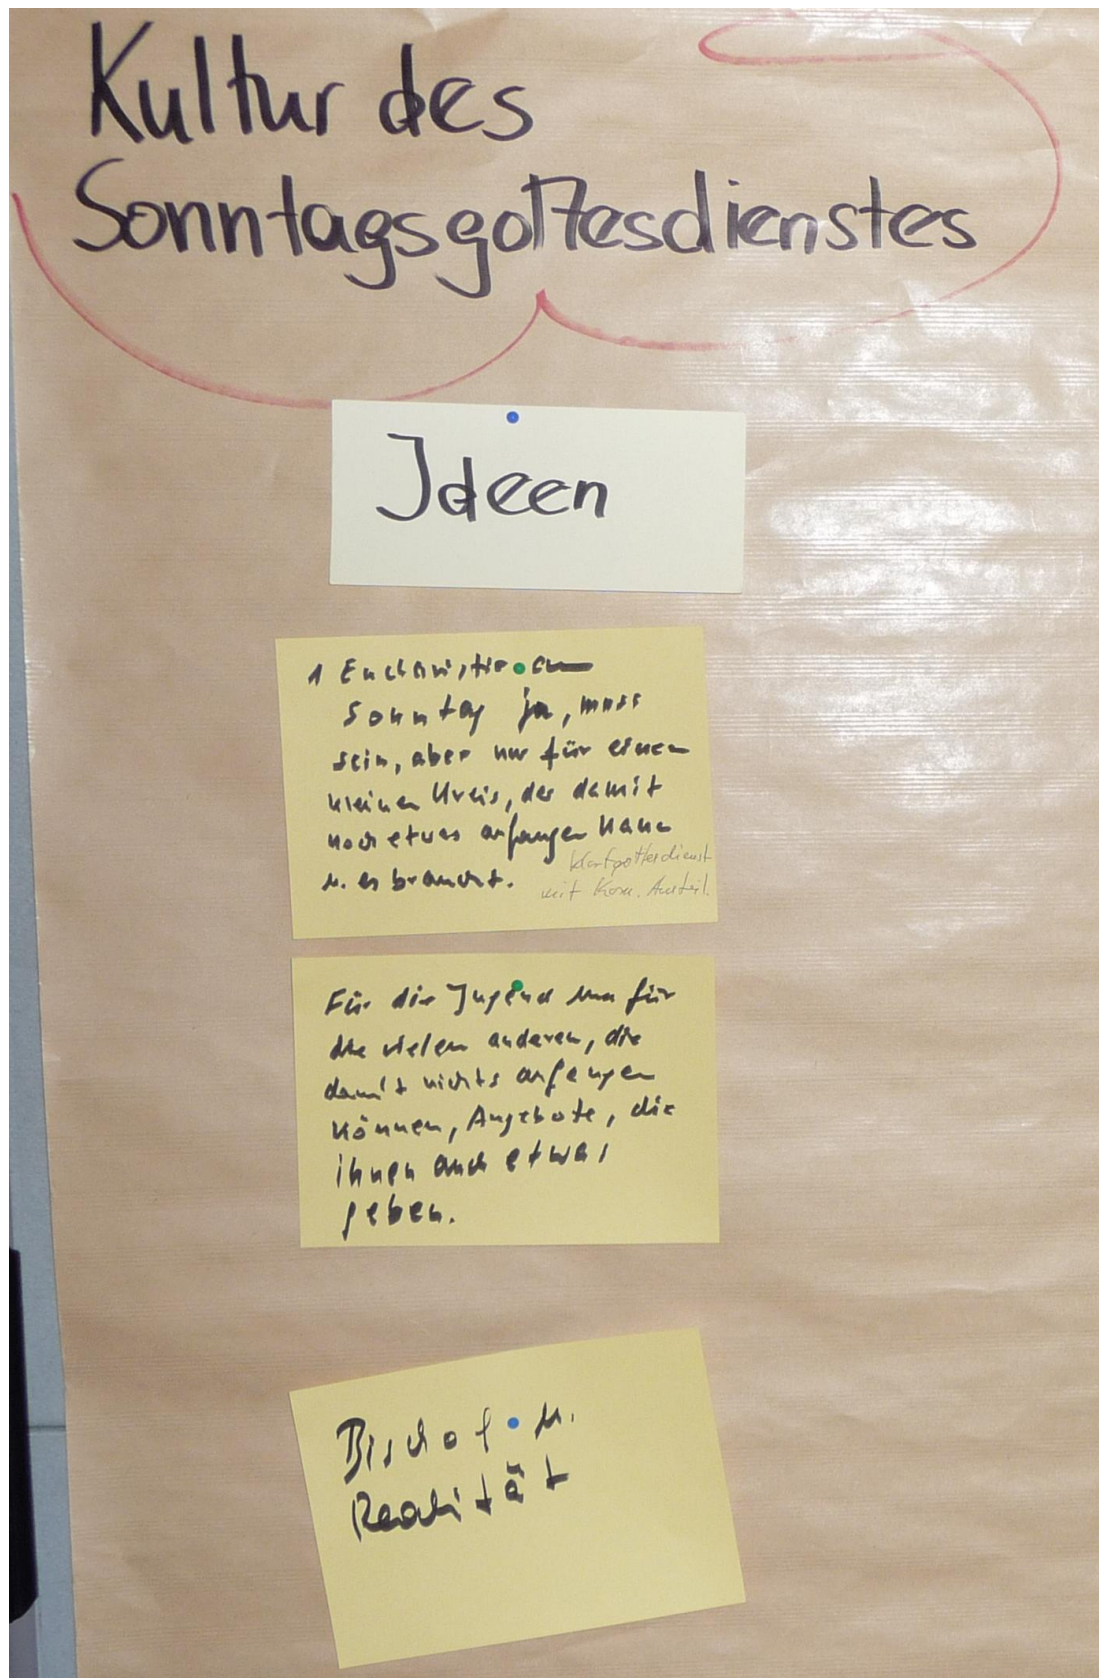 Kultur des
Sonntagsgottesdienstes
Ideen
1 Eucharistie am
Sonntag ja, muss
sein, aber nur für einen
kleinen Kreis, der damit
noch etwas anfangen kann
u. es braucht.
mit Kom. Austeil.
Für die Jugend und für
die vielen anderen, die
damit nichts anfangen
können, Angebote, die
ihnen auch etwas
geben.
Bischof u.
Realität